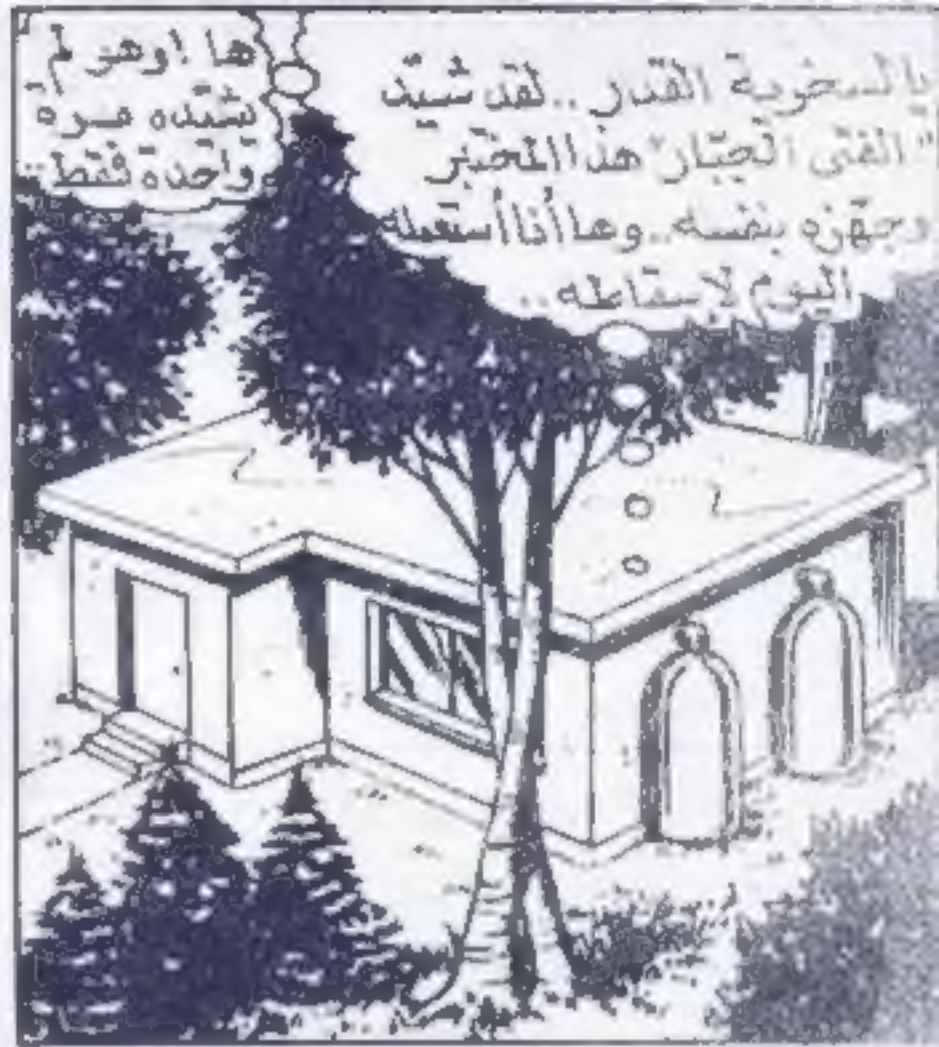 يالسخرية القدر.. لقد شيّد
"الفتى الجبّار" هذا المختبر
وجهّزه بنفسه.. وها أنا أستعمله
اليوم لإسقاطه..
ها! وهو لم
يشيّده مرة
واحدة فقط..